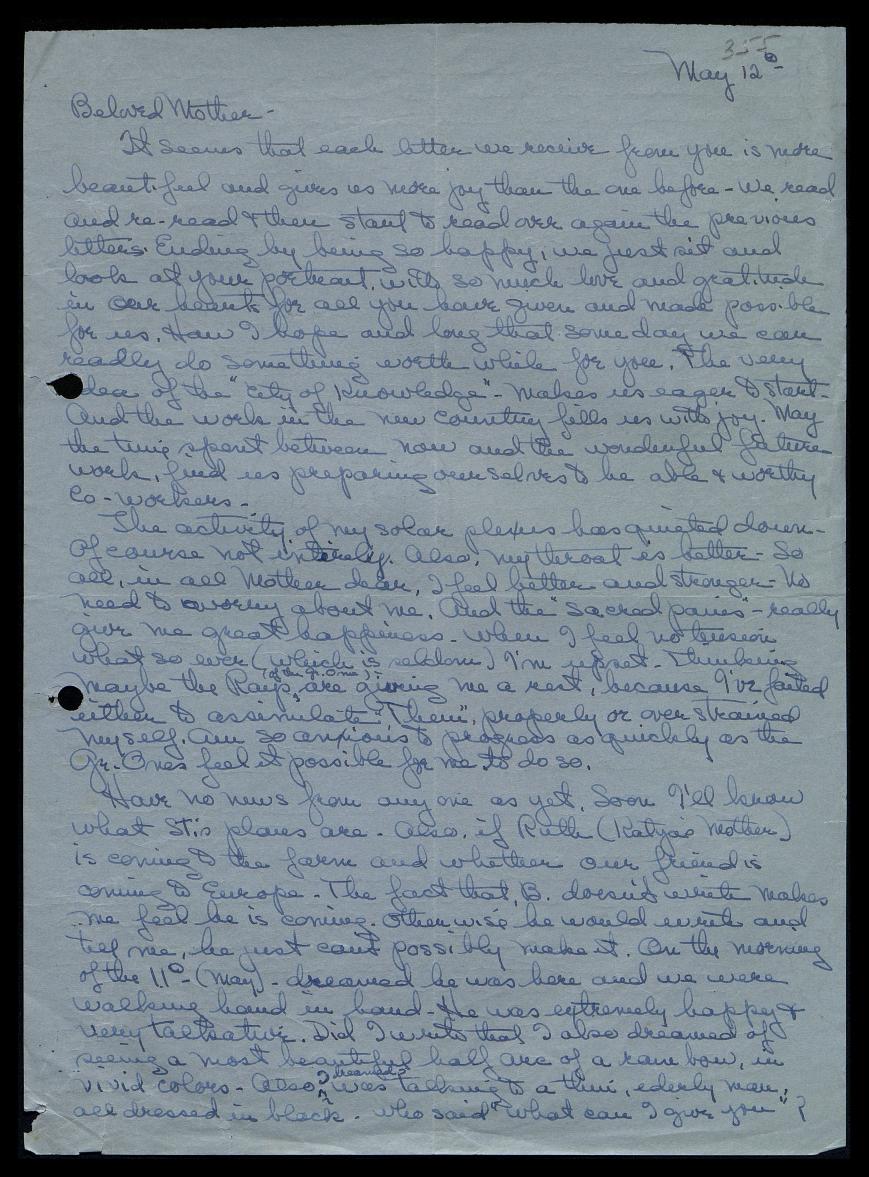 355
May 12º-
Beloved Mother-
It seems that each letter we receive from you is more
beautiful and gives us more joy than the one before - We read
and re-read & then start to read over again the previous
letters. Ending by being so happy, we just sit and
look at your portrait, with so much love and gratitude
in our hearts for all you have given and made possible
for us. How I hope and long that some day we can
readly do something worth while for you. The very
idea of the "City of Knowledge" - makes us eager to start-
And the work in the new country fills us with joy. May
the time spent between now and the wonderful future
work, find us preparing ourselves to be able & worthy
Co-workers-
The activity of my solar plexus has quieted down-
Of course not entirely. Also, my throat is better - So
all, in all Mother dear, I feel better and stronger - No
need to worry about me. And the "sacred pains" - really
give me great happiness - When I feel no tension
what so ever (which is seldom) I'm upset - Thinking
(of the Gr. Ones)
maybe the Rays, are giving me a rest, because I've failed
either to assimilate "Them", properly or over strained
myself. Am so anxious to progress as quickly as the
Gr. Ones feel it possible for me to do so.
Have no news from any one as yet. Soon I'll know
what St's plans are - Also, if Ruth (Katya's Mother)
is coming to the farm and whether our friend is
coming to Europe - The fact that, B. doesn't write makes
me feel he is coming. Other wise he would write and
tell me, he just can't possibly make it. On the morning
of the 11º- (May) - dreamed he was here and we were
walking hand in hand - He was extremely happy &
very talkative. Did I write that I also dreamed of
seeing a most beautiful half arc of a rain bow, in
dreamed I
vivid colors - Also, I was talking to a thin, ederly man,
all dressed in black - who said "What can I give you"?